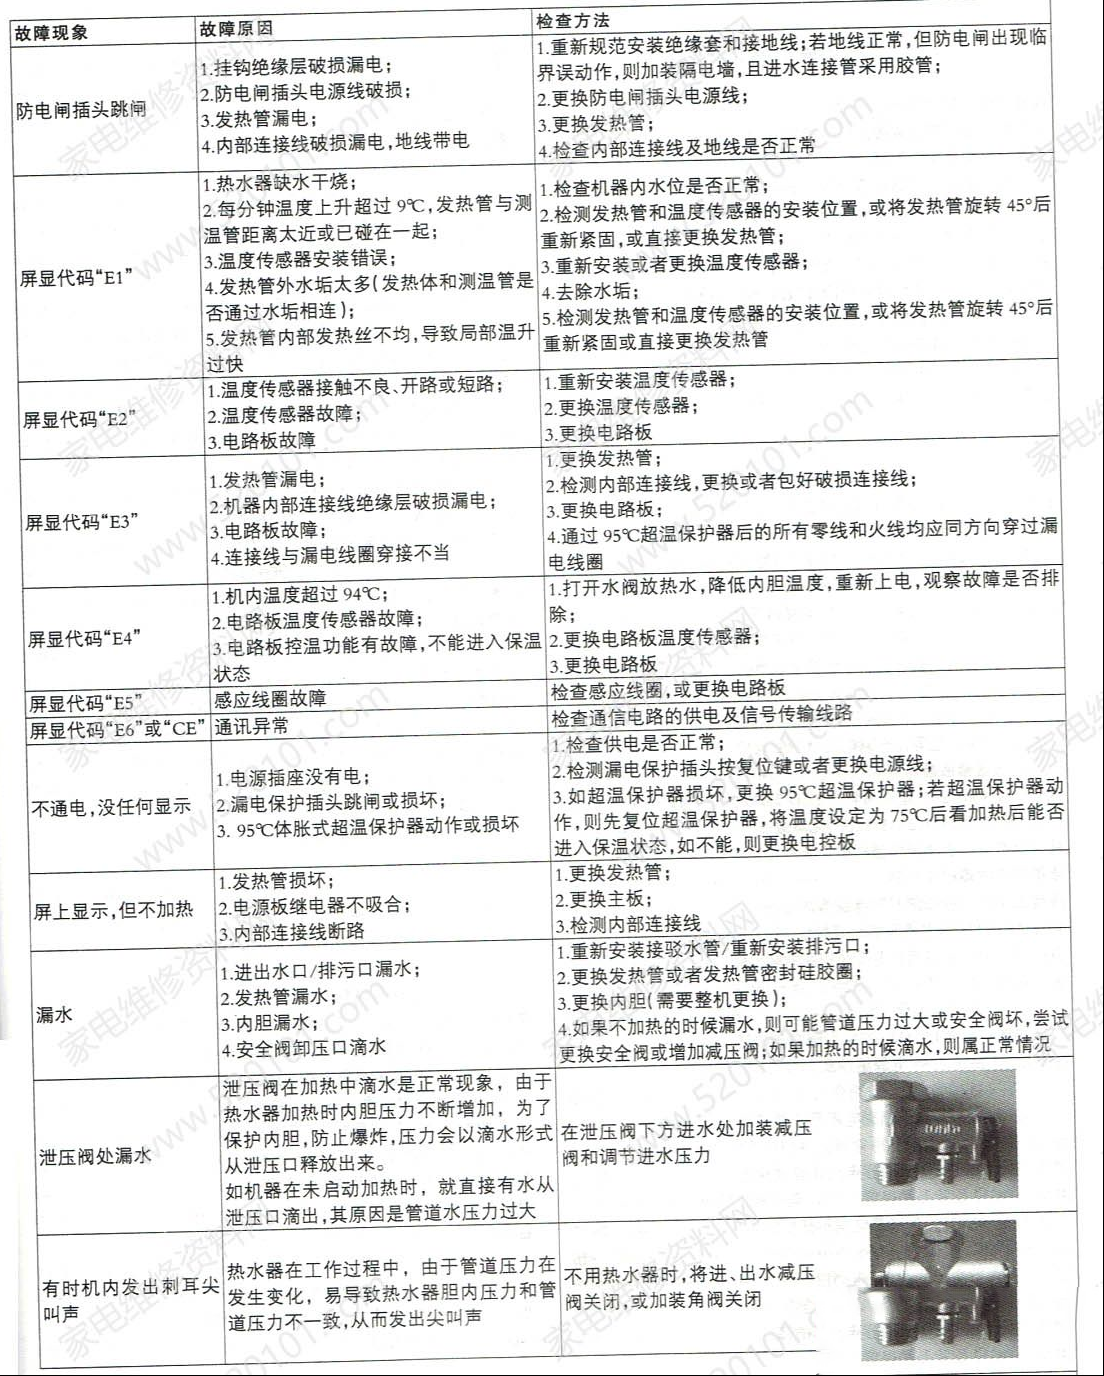 故障现象
故障原因
检查方法
防电闸插头跳闸
1.挂钩绝缘层破损漏电；
2.防电闸插头电源线破损；
3.发热管漏电；
4.内部连接线破损漏电,地线带电
1.重新规范安装绝缘套和接地线；若地线正常,但防电闸出现临
界误动作,则加装隔电墙,且进水连接管采用胶管；
2.更换防电闸插头电源线；
3.更换发热管；
4.检查内部连接线及地线是否正常
屏显代码“E1”
1.热水器缺水干烧；
2.每分钟温度上升超过 9℃,发热管与测
温管距离太近或已碰在一起；
3.温度传感器安装错误；
4.发热管外水垢太多(发热体和测温管是
否通过水垢相连)；
5.发热管内部发热丝不均,导致局部温升
过快
1.检查机器内水位是否正常；
2.检测发热管和温度传感器的安装位置,或将发热管旋转 45°后
重新紧固,或直接更换发热管；
3.重新安装或者更换温度传感器；
4.去除水垢；
5.检测发热管和温度传感器的安装位置,或将发热管旋转 45°后
重新紧固或直接更换发热管
屏显代码“E2”
1.温度传感器接触不良、开路或短路；
2.温度传感器故障；
3.电路板故障
1.重新安装温度传感器；
2.更换温度传感器；
3.更换电路板
屏显代码“E3”
1.发热管漏电；
2.机器内部连接线绝缘层破损漏电；
3.电路板故障；
4.连接线与漏电线圈穿接不当
1.更换发热管；
2.检测内部连接线,更换或者包好破损连接线；
3.更换电路板；
4.通过 95℃超温保护器后的所有零线和火线均应同方向穿过漏
电线圈
屏显代码“E4”
1.机内温度超过 94℃；
2.电路板温度传感器故障；
3.电路板控温功能有故障,不能进入保温
状态
1.打开水阀放热水,降低内胆温度,重新上电,观察故障是否排
除；
2.更换电路板温度传感器；
3.更换电路板
屏显代码“E5”
感应线圈故障
检查感应线圈,或更换电路板
屏显代码“E6”或“CE”
通讯异常
检查通信电路的供电及信号传输线路
不通电,没任何显示
1.电源插座没有电；
2.漏电保护插头跳闸或损坏；
3. 95℃体胀式超温保护器动作或损坏
1.检查供电是否正常；
2.检测漏电保护插头按复位键或者更换电源线；
3.如超温保护器损坏,更换 95℃超温保护器；若超温保护器动
作,则先复位超温保护器,将温度设定为 75℃后看加热后能否
进入保温状态,如不能,则更换电控板
屏上显示,但不加热
1.发热管损坏；
2.电源板继电器不吸合；
3.内部连接线断路
1.更换发热管；
2.更换主板；
3.检测内部连接线
漏水
1.进出水口/排污口漏水；
2.发热管漏水；
3.内胆漏水；
4.安全阀卸压口滴水
1.重新安装接驳水管/重新安装排污口；
2.更换发热管或者发热管密封硅胶圈；
3.更换内胆(需要整机更换)；
4.如果不加热的时候漏水,则可能管道压力过大或安全阀坏,尝试
更换安全阀或增加减压阀；如果加热的时候滴水,则属正常情况
泄压阀处漏水
泄压阀在加热中滴水是正常现象，由于
热水器加热时内胆压力不断增加，为了
保护内胆,防止爆炸,压力会以滴水形式
从泄压口释放出来。
如机器在未启动加热时，就直接有水从
泄压口滴出,其原因是管道水压力过大
在泄压阀下方进水处加装减压
阀和调节进水压力
有时机内发出刺耳尖
叫声
热水器在工作过程中，由于管道压力在
发生变化，易导致热水器胆内压力和管
道压力不一致,从而发出尖叫声
不用热水器时,将进、出水减压
阀关闭,或加装角阀关闭
家电维修资料网
www.520101.com